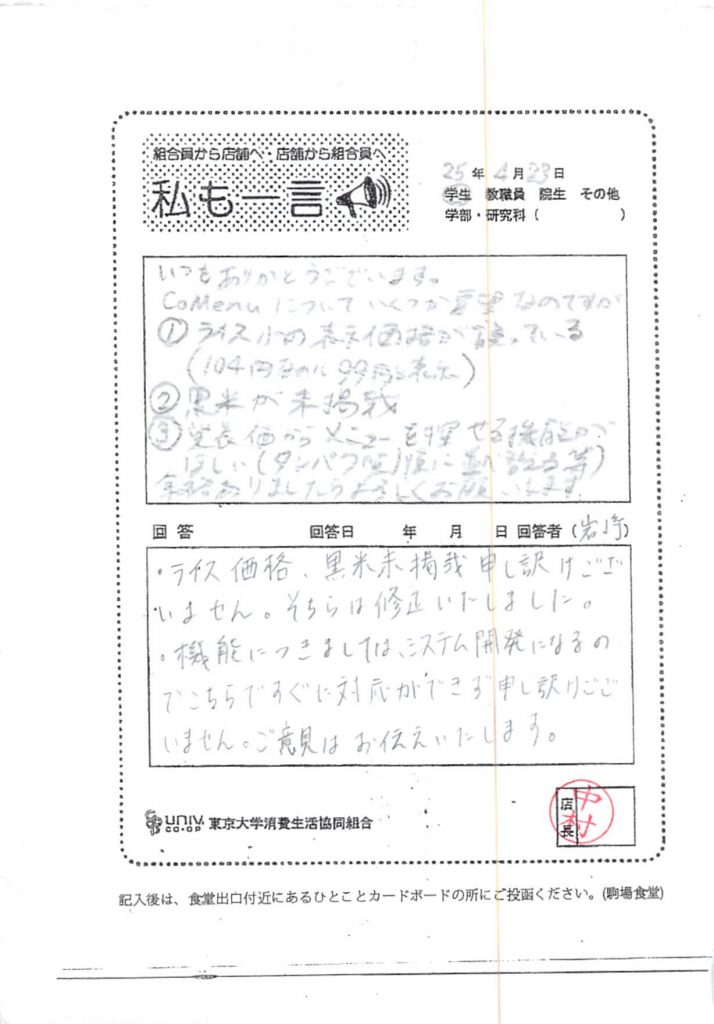 組合員から店舗へ・店舗から組合員へ
私も一言
25年4月23日
学生 教職員 院生 その他
学部・研究科( )
いつもありがとうございます。
CoMenuについていくつか要望なのですが
① ライス小の表示価格が誤っている
(104円なのに99円と表示)
② 黒米が未掲載
③ 栄養価からメニューを探せる機能が
ほしい(タンパク質順に並び替える等)
余裕ありましたらよろしくお願いします。
回答 回答日 年 月 日 回答者(岩崎)
・ライス価格、黒米未掲載申し訳けござ
いません。そちらは修正いたしました。
・機能につきましては、システム開発になるの
でこちらですぐに対応ができず申し訳けござ
いません。ご意見はお伝えいたします。
UNIV. CO-OP 東京大学消費生活協同組合
店長
中村
記入後は、食堂出口付近にあるひとことカードボードの所にご投函ください。(駒場食堂)